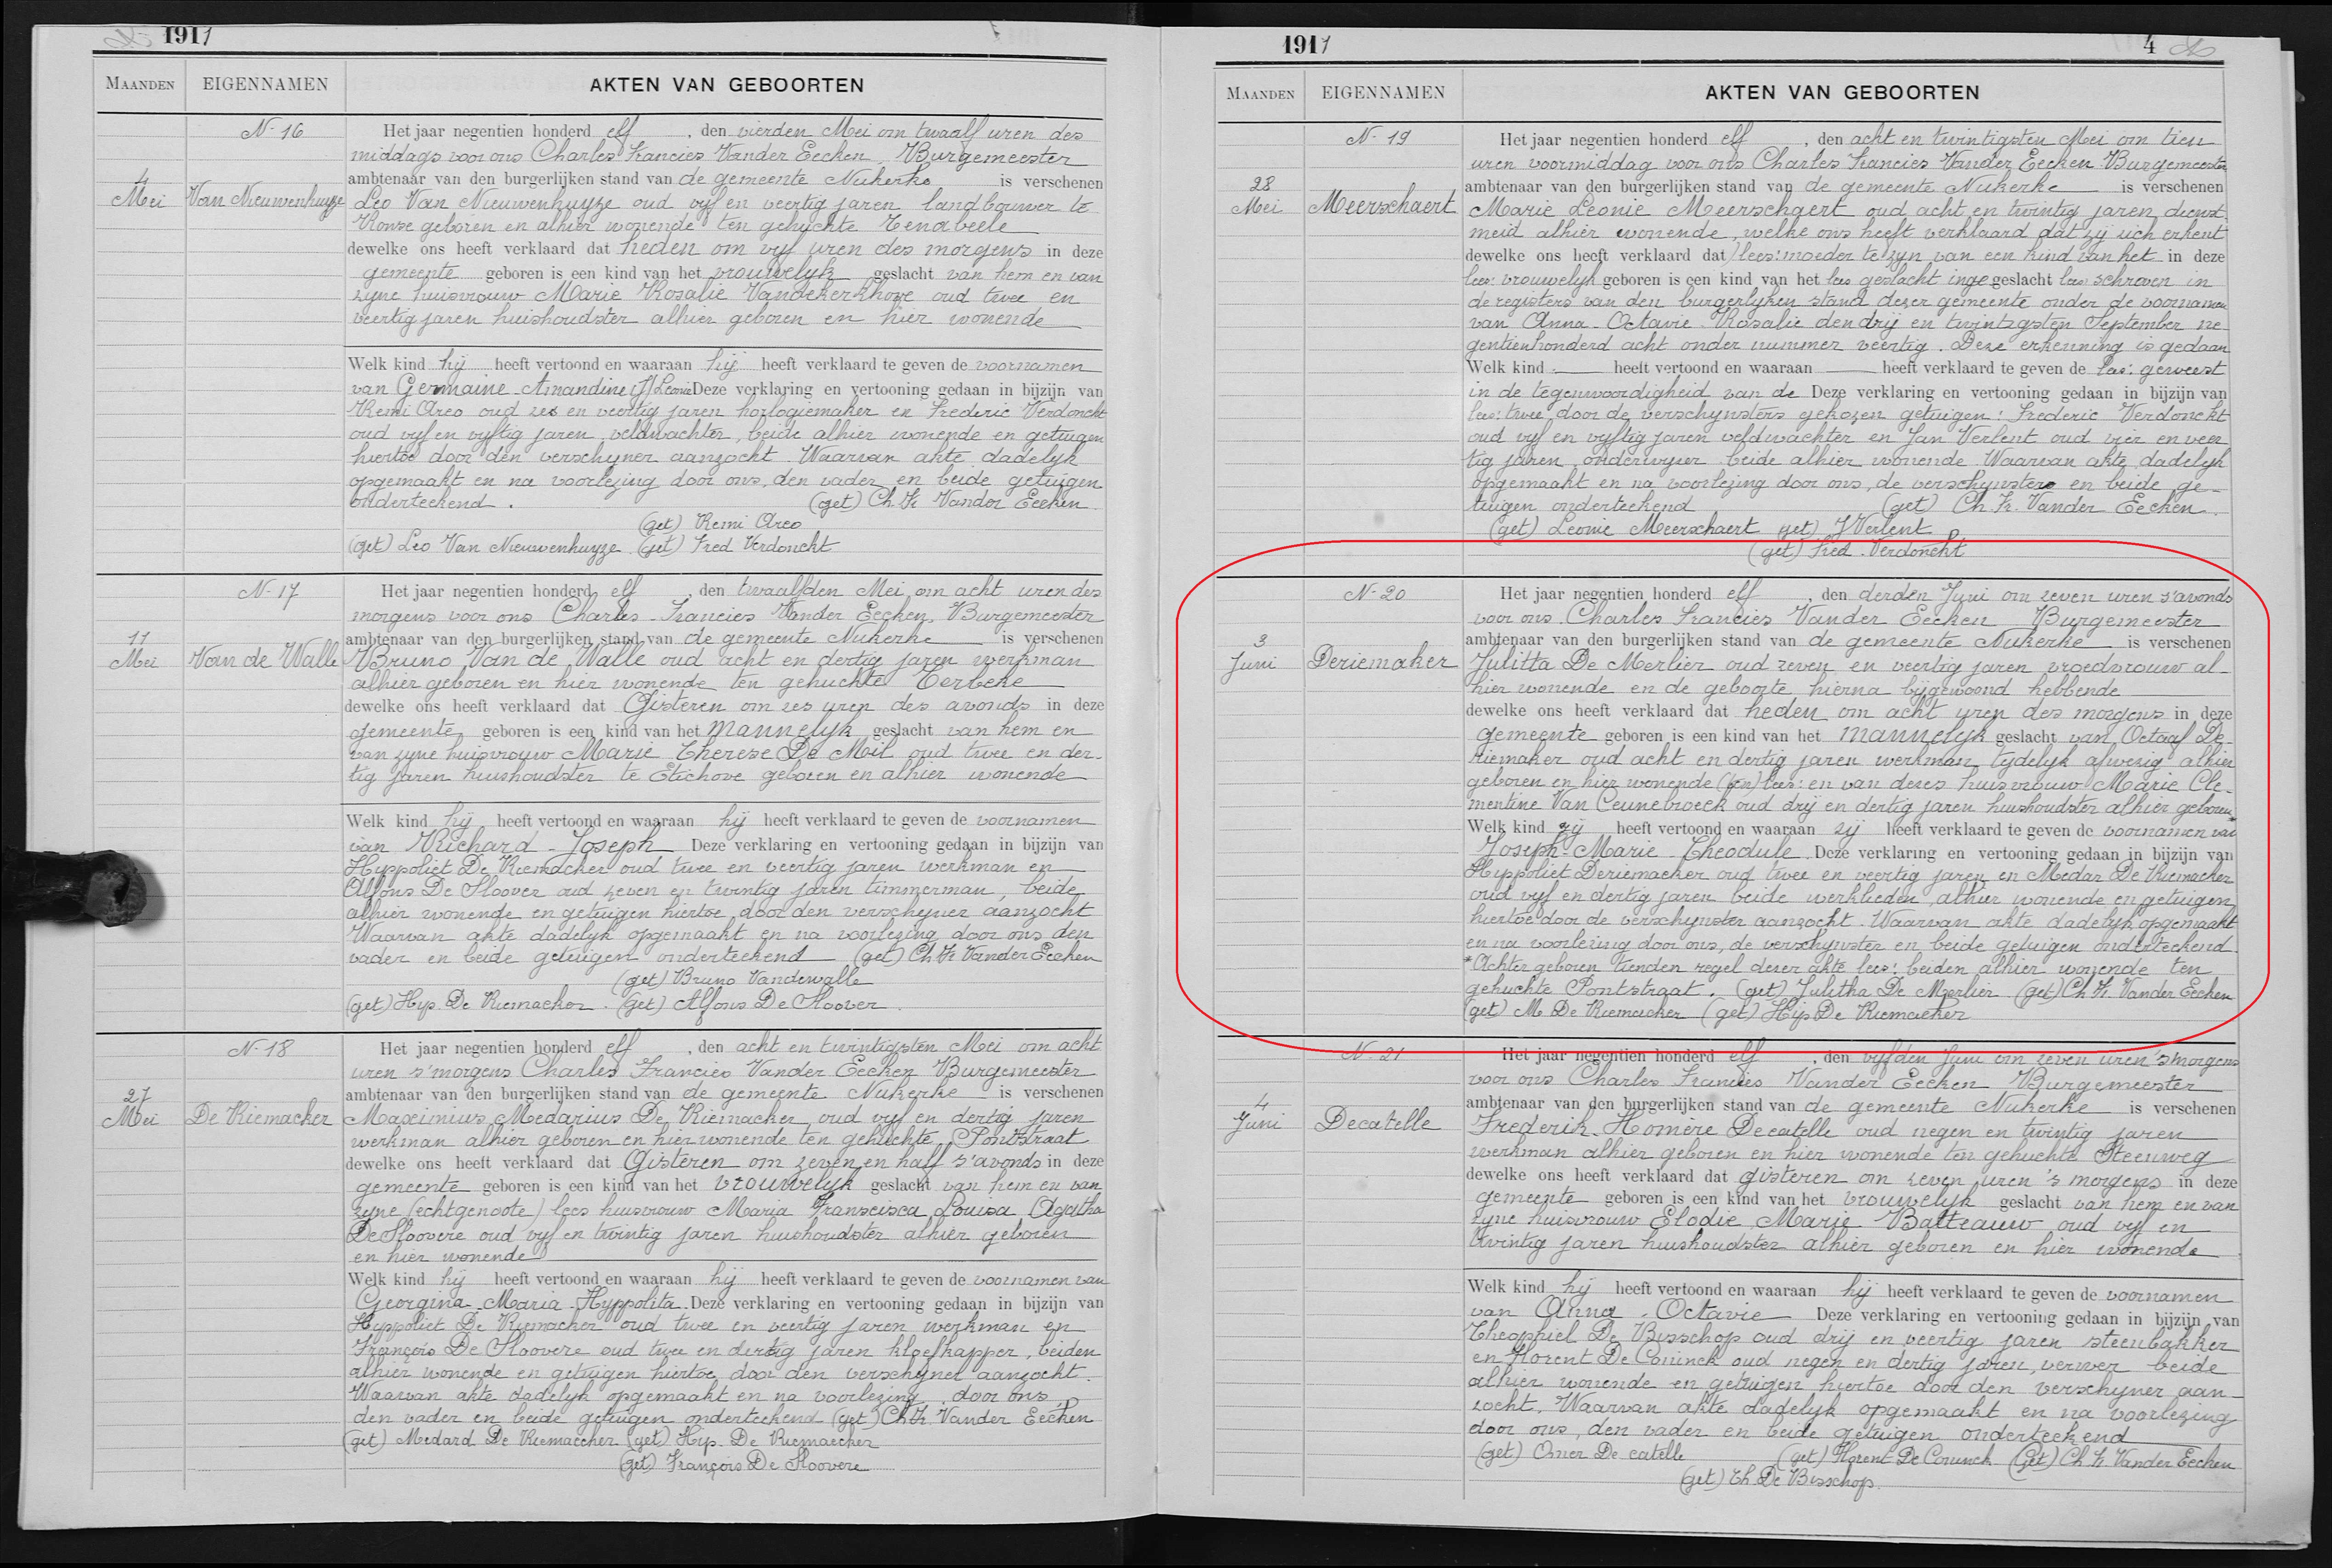 1911
MAANDEN EIGENNAMEN AKTEN VAN GEBOORTEN
N- 16
4
Mei
Van Nieuwenhuyze
Het jaar negentien honderd elf, den vierden Mei om twaalf uren des
middags voor ons Charles Francies Vander Eecken, Burgemeester
ambtenaar van den burgerlijken stand van de gemeente Nukerke is verschenen
Leo Van Nieuwenhuyze oud vijf en veertig jaren landbouwer te
Ronse geboren en alhier wonende ten gehuchte Tenabeele
dewelke ons heeft verklaard dat heden om vijf uren des morgens in deze
gemeente geboren is een kind van het vrouwelijk geslacht van hem en van
zijne huisvrouw Marie Rosalie Vandekerkhove oud twee en
veertig jaren huishoudster alhier geboren en hier wonende
Welk kind hij heeft vertoond en waaraan hij heeft verklaard te geven de voornamen
van Germaine-Amandine Leonie Deze verklaring en vertooning gedaan in bijzijn van
Remi Areo oud zes en veertig jaren horlogiemaker en Frederic Verdonckt
oud vijf en vijftig jaren, veldwachter, beide alhier wonende en getuigen
hiertoe door den verschijner aanzocht. Waarvan akte dadelijk
opgemaakt en na voorlezing door ons, den vader en beide getuigen
onderteekend. (get) Ch. Fr Vander Eecken.
(get) Remi Areo
(get) Leo Van Nieuwenhuyze (get) Fred Verdonckt
N- 17
11
Mei
Van de Walle
Het jaar negentien honderd elf, den twaalfden Mei om acht uren des
morgens voor ons Charles-Francies Vander Eecken, Burgemeester
ambtenaar van den burgerlijken stand van de gemeente Nukerke is verschenen
Bruno Van de Walle oud acht en dertig jaren werkman
alhier geboren en hier wonende ten gehuchte Terbeke
dewelke ons heeft verklaard dat Gisteren om zes uren des avonds in deze
gemeente geboren is een kind van het mannelijk geslacht van hem en
van zijne huisvrouw Marie Therese De Mil oud twee en der-
tig jaren huishoudster te Etichove geboren en alhier wonende
Welk kind hij heeft vertoond en waaraan hij heeft verklaard te geven de voornamen
van Richard-Joseph Deze verklaring en vertooning gedaan in bijzijn van
Hyppoliet De Riemacker oud twee en veertig jaren werkman en
Alfons De Sloover oud zeven en twintig jaren timmerman, beide
alhier wonende en getuigen hiertoe door den verschijner aanzocht
Waarvan akte dadelijk opgemaakt en na voorlezing door ons den
vader en beide getuigen onderteekend (get) Ch Fr Vander Eecken
(get) Bruno Vandewalle
(get) Hyp. De Riemacker. (get) Alfons De Sloover.
N- 18
27
Mei
De Riemacker
Het jaar negentien honderd elf, den acht en twintigsten Mei om acht
uren s'morgens Charles Francies Vander Eecken Burgemeester
ambtenaar van den burgerlijken stand van de gemeente Nukerke is verschenen
Maximius Medarius De Riemacker oud vijf en dertig jaren
werkman alhier geboren en hier wonende ten gehuchte Pontstraat
dewelke ons heeft verklaard dat Gisteren om zeven en half s'avonds in deze
gemeente geboren is een kind van het vrouwelijk geslacht van hem en van
zijne (echtgenoote) lees huisvrouw Maria Fransisca Louisa Agatha
De Sloovere oud vijf en twintig jaren huishoudster alhier geboren
en hier wonende
Welk kind hij heeft vertoond en waaraan hij heeft verklaard te geven de voornamen van
Georgina-Maria-Hyppolita. Deze verklaring en vertooning gedaan in bijzijn van
Hyppoliet De Riemacker oud twee en veertig jaren werkman en
François De Sloovere oud twee en dertig jaren kloefkapper, beiden
alhier wonende en getuigen hiertoe door den verschijner aanzocht.
Waarvan akte dadelijk opgemaakt en na voorlezing door ons,
den vader en beide getuigen onderteekend (get) Ch Fr. Vander Eecken
(get) Medard De Riemaecker (get) Hyp. De Riemaecker
(get) François De Sloovere
1911 4
MAANDEN EIGENNAMEN AKTEN VAN GEBOORTEN
N- 19
28
Mei
Meerschaert
Het jaar negentien honderd elf, den acht en twintigsten Mei om tien
uren voormiddag voor ons Charles Francies Vander Eecken Burgemeester
ambtenaar van den burgerlijken stand van de gemeente Nukerke is verschenen
Marie Leonie Meerschaert oud acht en twintig jaren dienst
meid alhier wonende, welke ons heeft verklaard dat zij zich erkent
dewelke ons heeft verklaard dat) lees: moeder te zijn van een kind van het in deze
lees: vrouwelijk geboren is een kind van het lees geslacht inge geslacht lees: schreven in
de registers van den burgerlijken stand dezer gemeente onder de voornamen
van Anna-Octavie-Rosalie den drij en twintigsten September ne-
gentienhonderd acht onder nummer veertig. Deze erkenning is gedaan
Welk kind heeft vertoond en waaraan heeft verklaard te geven de lees: geweest
in de tegenwoordigheid van de Deze verklaring en vertooning gedaan in bijzijn van
lees: twee door de verschijnsters gekozen getuigen: Frederic Verdonckt
oud vijf en vijftig jaren veldwachter en Jan Verlent oud vier en veer
tig jaren onderwijzer beide alhier wonende Waarvan akte dadelijk
opgemaakt en na voorlezing door ons, de verschijnster en beide ge-
tuigen onderteekend (get) Ch Fr. Vander Eecken.
(get) Leonie Meerschaert (get) J Verlent
(get) Fred. Verdonckt
N- 20
3
Juni
Deriemaker
Het jaar negentien honderd elf, den derden Juni om zeven uren s'avonds
voor ons Charles Francies Vander Eecken Burgemeester
ambtenaar van den burgerlijken stand van de gemeente Nukerke is verschenen
Julitta De Merlier oud zeven en veertig jaren vroedvrouw al-
hier wonende en de geboorte hierna bijgewoond hebbende
dewelke ons heeft verklaard dat heden om acht uren des morgens in deze
gemeente geboren is een kind van het mannelijk geslacht van Octaaf De-
riemaker oud acht en dertig jaren werkman tijdelijk afwezig alhier
geboren en hier wonende (en) lees: en van deres huisvrouw Marie Cle-
mentine Van Ceunebroeck oud drij en dertig jaren huishoudster alhier geboren*
Welk kind zij heeft vertoond en waaraan zij heeft verklaard te geven de voornamen van
Joseph-Marie Theodule. Deze verklaring en vertooning gedaan in bijzijn van
Hyppoliet Deriemacker oud twee en veertig jaren en Medar De Riemacker
oud vijf en dertig jaren beide werklieden, alhier wonende en getuigen
hiertoe door de verschijnster aanzocht. Waarvan akte dadelijk opgemaakt
en na voorlezing door ons, de verschijnster en beide getuigen onderteekend.
*Achter geboren tienden regel dezer akte lees: beiden alhier wonende ten
gehuchte Pontstraat. (get) Julitha De Merlier (get) Ch Fr. Vander Eecken
(get) M De Riemacker (get) Hyp De Riemacker
N- 21
4
Juni
Decatelle
Het jaar negentien honderd elf, den vijfden Juni om zeven uren 's morgens
voor ons Charles Francies Vander Eecken Burgemeester
ambtenaar van den burgerlijken stand van de gemeente Nukerke is verschenen
Frederik-Homère Decatelle oud negen en twintig jaren
werkman alhier geboren en hier wonende ten gehuchte Steenweg
dewelke ons heeft verklaard dat gisteren om zeven uren 's morgens in deze
gemeente geboren is een kind van het vrouwelijk geslacht van hem en van
zijne huisvrouw Elodie Marie Batteauw oud vijf en
twintig jaren huishoudster alhier geboren en hier wonende
Welk kind hij heeft vertoond en waaraan hij heeft verklaard te geven de voornamen
van Anna-Octavie Deze verklaring en vertooning gedaan in bijzijn van
Theophiel De Bisschop oud drij en veertig jaren steenbakker
en Florent De Coninck oud negen en dertig jaren, verwer beide
alhier wonende en getuigen hiertoe door den verschijner aan-
zocht. Waarvan akte dadelijk opgemaakt en na voorlezing
door ons, den vader en beide getuigen onderteekend
(get) Omer De catelle (get) Florent De Coninck (get) Ch Fr. Vander Eecken
(get) Th De Bisschop.